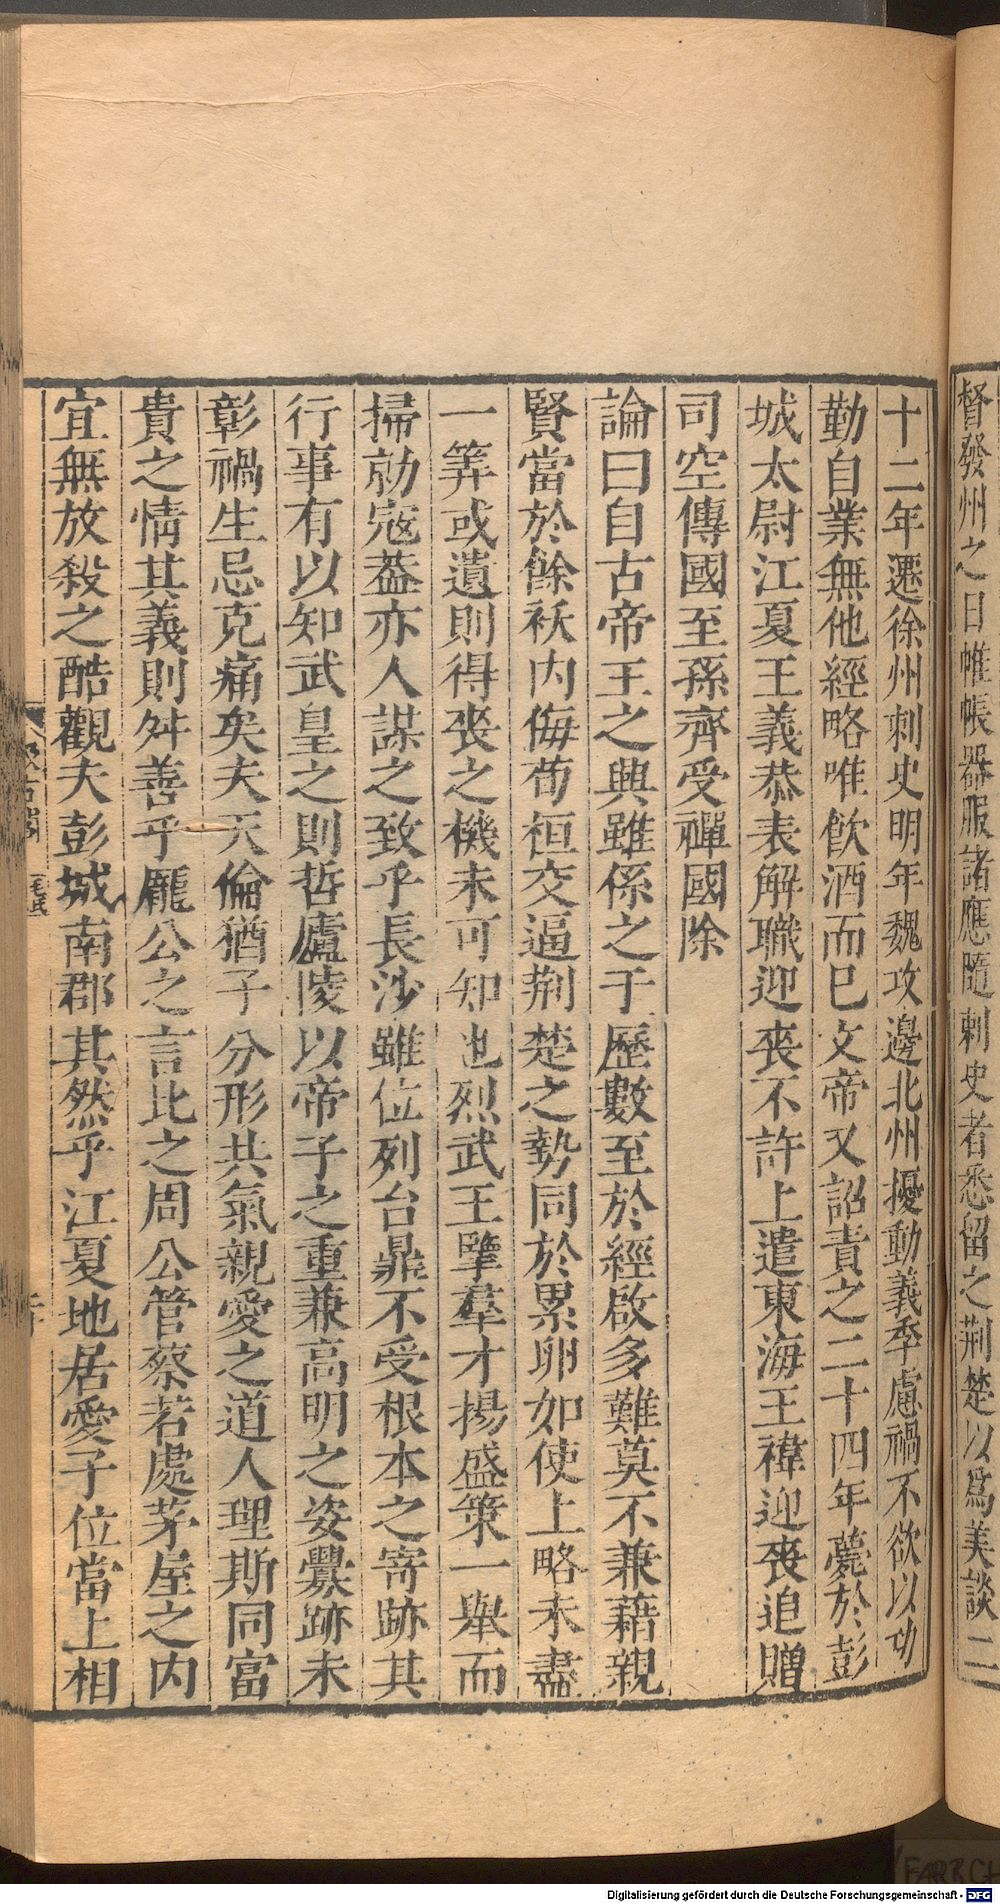 督發州之日帷帳器服諸應隨刺史者悉留之荊楚以爲美談二
十二年遷徐州刺史明年魏攻邊北州擾動義季慮禍不欲以功
勤自業無他經略唯飲酒而已文帝又詔責之二十四年薨於彭
城太尉江夏王義恭表解職迎喪不許上遣東海王褘迎喪追贈
司空傳國至孫齊受禪國除
論曰自古帝王之興雖係之于歷數至於經啟多難莫不兼藉親
賢當於餘祅內侮荀桓交逼荊楚之勢同於累卵如使上略未盡
一筭或遺則得喪之機未可知也烈武王擥羣才揚盛策一舉而
掃勍寇葢亦人謀之致乎長沙雖位列台鼎不受根本之寄跡其
行事有以知武皇之則哲廬陵以帝子之重兼高明之姿釁跡未
彰禍生忌克痛矣夫天倫猶子分形共氣親愛之道人理斯同富
貴之情其義則舛善乎龐公之言比之周公管蔡若處茅屋之內
宜無放殺之酷觀夫彭城南郡其然乎江夏地居愛子位當上相
Digitalisierung gefördert durch die Deutsche Forschungsgemeinschaft - DFG